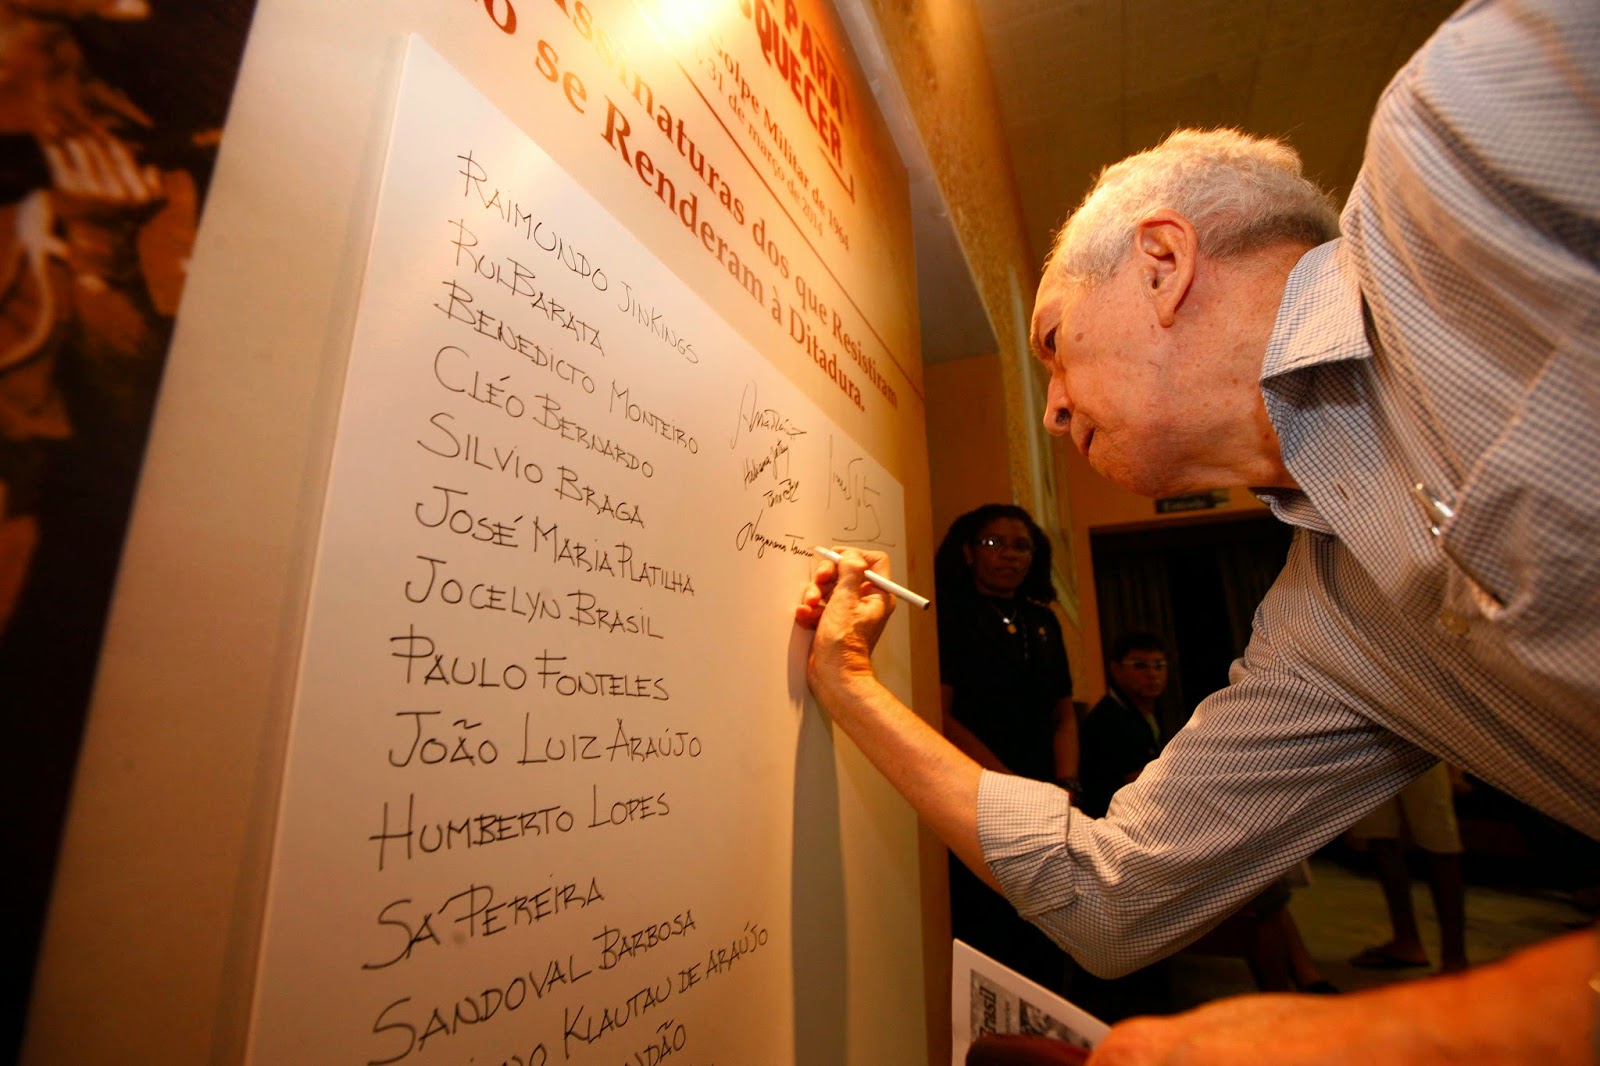 PARA
SQUECER
Golpe Militar de 1964
31 de março de 2014
Assinaturas dos que Resistiram
o se Renderam à Ditadura.
RAIMUNDO JINKINGS
RUI BARATA
BENEDICTO MONTEIRO
CLÉO BERNARDO
SILVIO BRAGA
JOSÉ MARIA PLATILHA
JOCELYN BRASIL
PAULO FONTELES
JOÃO LUIZ ARAÚJO
HUMBERTO LOPES
SÁ PEREIRA
SANDOVAL BARBOSA
NO KLAUTAU DE ARAÚJO
NDÃO
Brasil